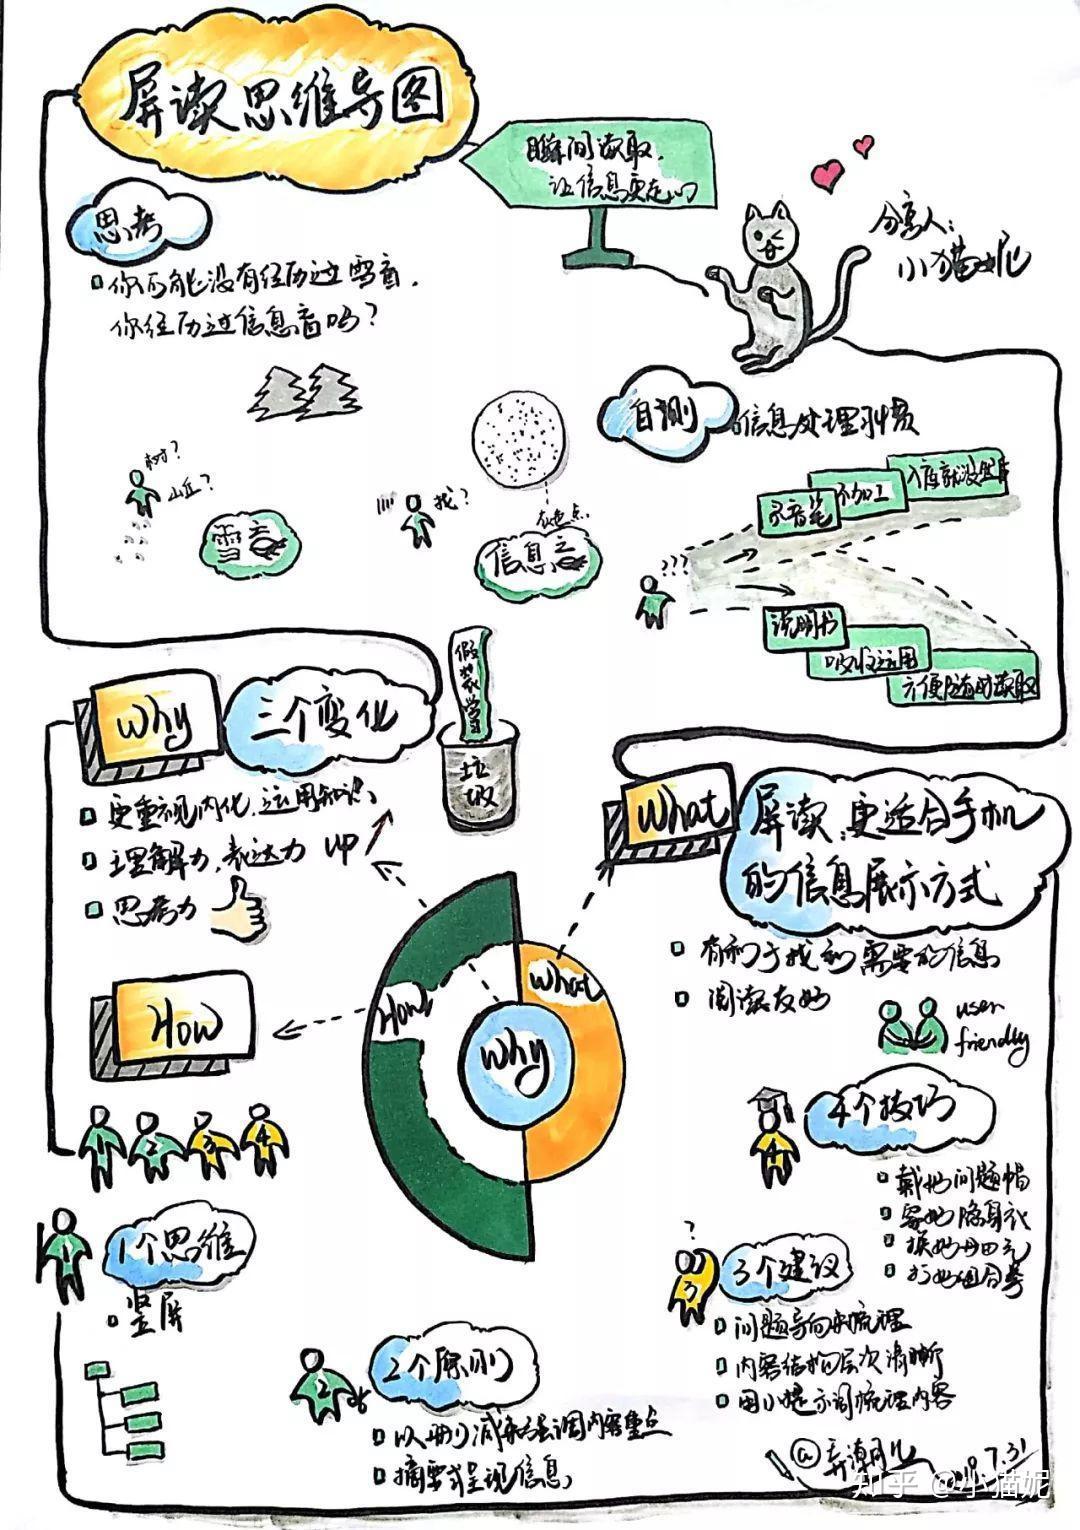 屏读思维导图
瞬间读取,
让信息更走心
分享人:
小猫妮
思考
你可能没有经历过雪盲,
你经历过信息盲吗?
树?
山丘?
雪盲
找?
灰色点
信息盲
自测
信息处理习惯
录音笔
不加工
入库就没出库
???
说明书
吸收运用
方便随时读取
Why
三个变化
更重视内化、运用知识
理解力、表达力 UP
思考力
假装学习
垃圾
What
屏读:更适合手机
的信息展示方式
有利于找到需要的信息
阅读友好
user
friendly
How
How
What
Why
1
2
3
4
4个技巧
4
戴好问题帽
穿好隐身衣
换好单田元
打好组合拳
1
1个思维
竖屏
?
3
3个建议
问题导向来梳理
内容结构层次清晰
用小提示词梳理内容
2
2个原则
以删减来强调内容重点
摘要式呈现信息
@弄潮儿
7.31
知乎 @小猫妮